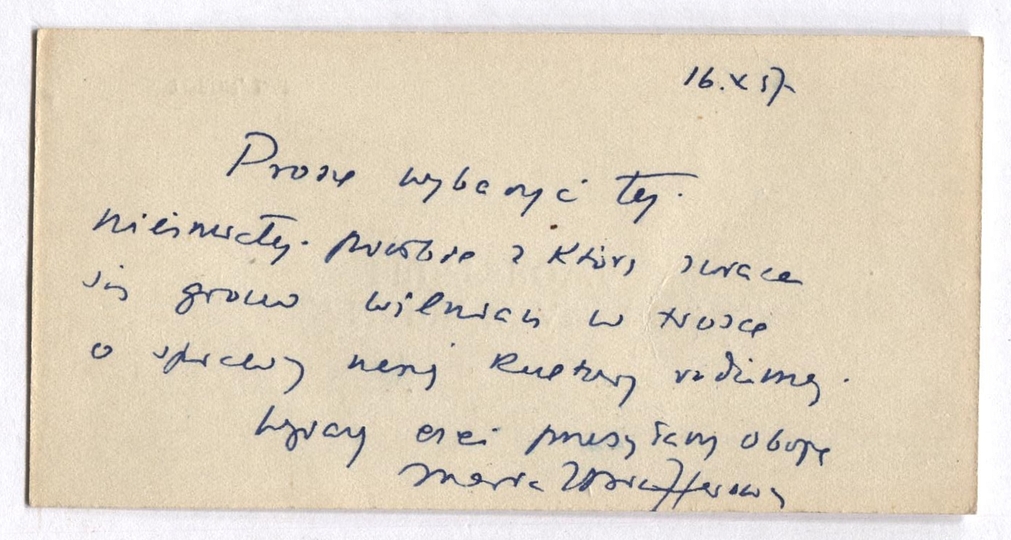 16.X 57.
Proszę wybaczyć tej
nieśmiałej prośbie z którą zwraca
się grono wilnian w trosce
o sprawy naszej kultury rodzimej.
Wyrazy czci przesyłamy oboje
Maria Znamierowska